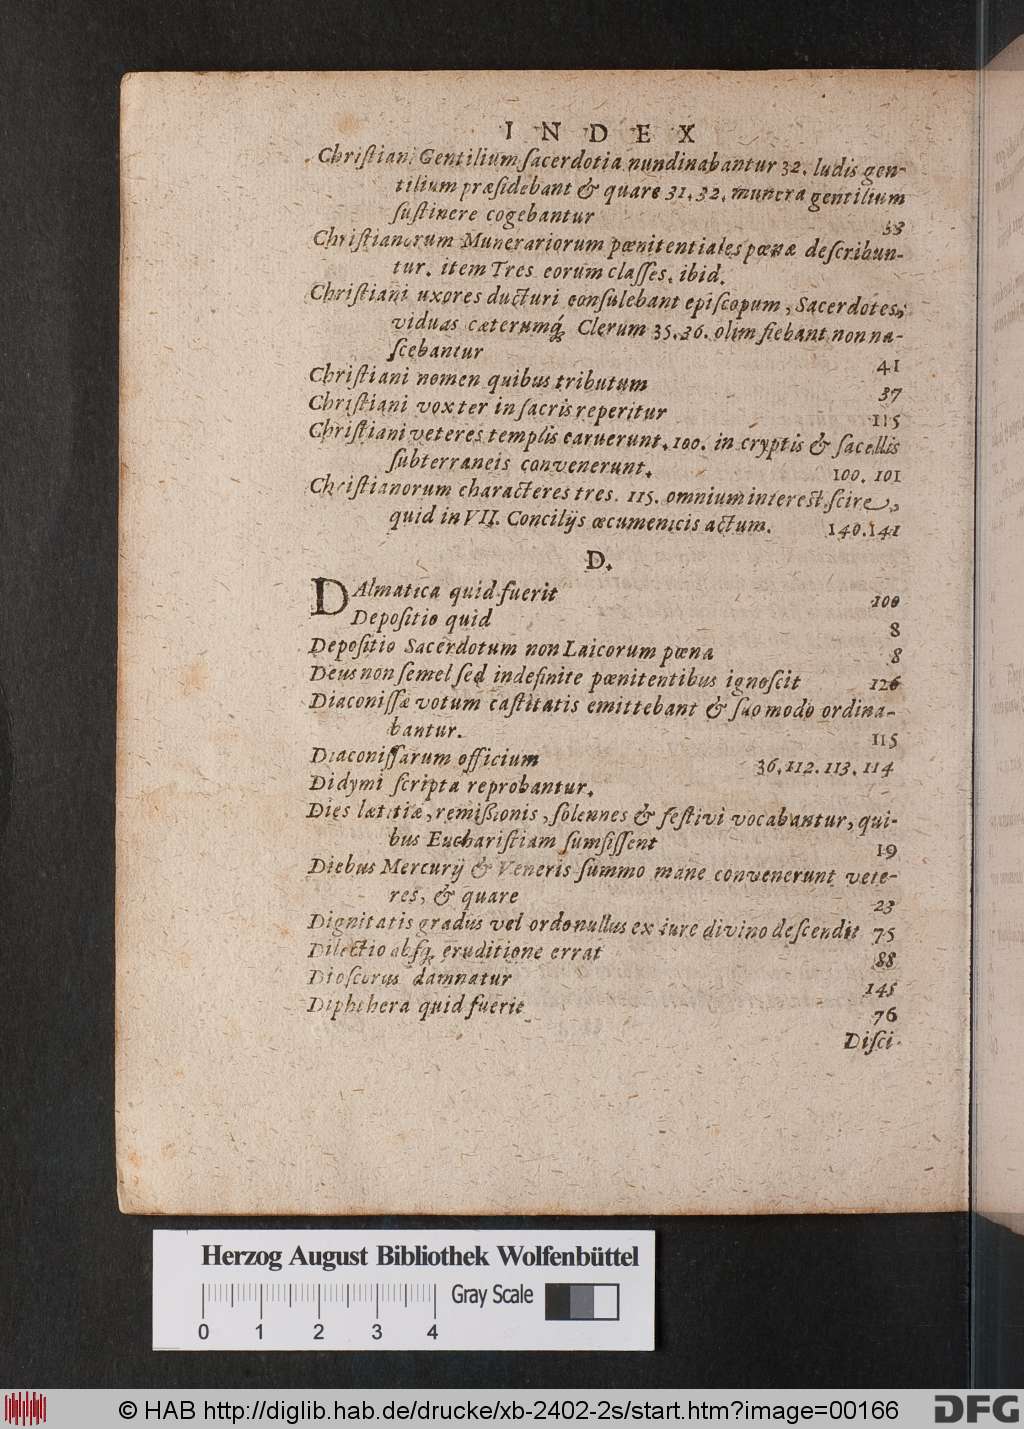 INDEX
Christiani Gentilium sacerdotia nundinabantur 32. ludis gen-
tilium præsidebant & quare 31. 32. munera gentilium
sustinere cogebantur 33
Christianorum Munerariorum pœnitentiales pœnæ describun-
tur. item Tres eorum classes. ibid.
Christiani uxores ducturi consulebant episcopum, Sacerdotes,
viduas cæterumq́; Clerum 35. 36. olim fiebant non na-
scebantur 41
Christiani nomen quibus tributum 37
Christiani vox ter in sacris reperitur 115
Christiani veteres templis caruerunt. 100. in cryptis & sacellis
subterraneis convenerunt. 100. 101
Christianorum characteres tres. 115. omnium interest scire,
quid in VII. Concilijs œcumenicis actum. 140. 141
D.
DAlmatica quid fuerit 100
Depositio quid 8
Depositio Sacerdotum non Laicorum pœna 8
Deus non semel sed indefinite pœnitentibus ignoscit 126
Diaconissæ votum castitatis emittebant & suo modo ordina-
bantur. 115
Diaconissarum officium 36. 112. 113. 114
Didymi scripta reprobantur.
Dies lætitiæ, remißionis, solennes & festivi vocabantur, qui-
bus Eucharistiam sumsissent 19
Diebus Mercurij & Veneris summo mane convenerunt vete-
res, & quare 23
Dignitatis gradus vel ordo nullus ex iure divino descendit 75
Dilectio absq; eruditione errat 88
Dioscorus damnatur 145
Diphthera quid fuerit 76
Disci-
Herzog August Bibliothek Wolfenbüttel
Gray Scale
0 1 2 3 4
© HAB http://diglib.hab.de/drucke/xb-2402-2s/start.htm?image=00166
DFG